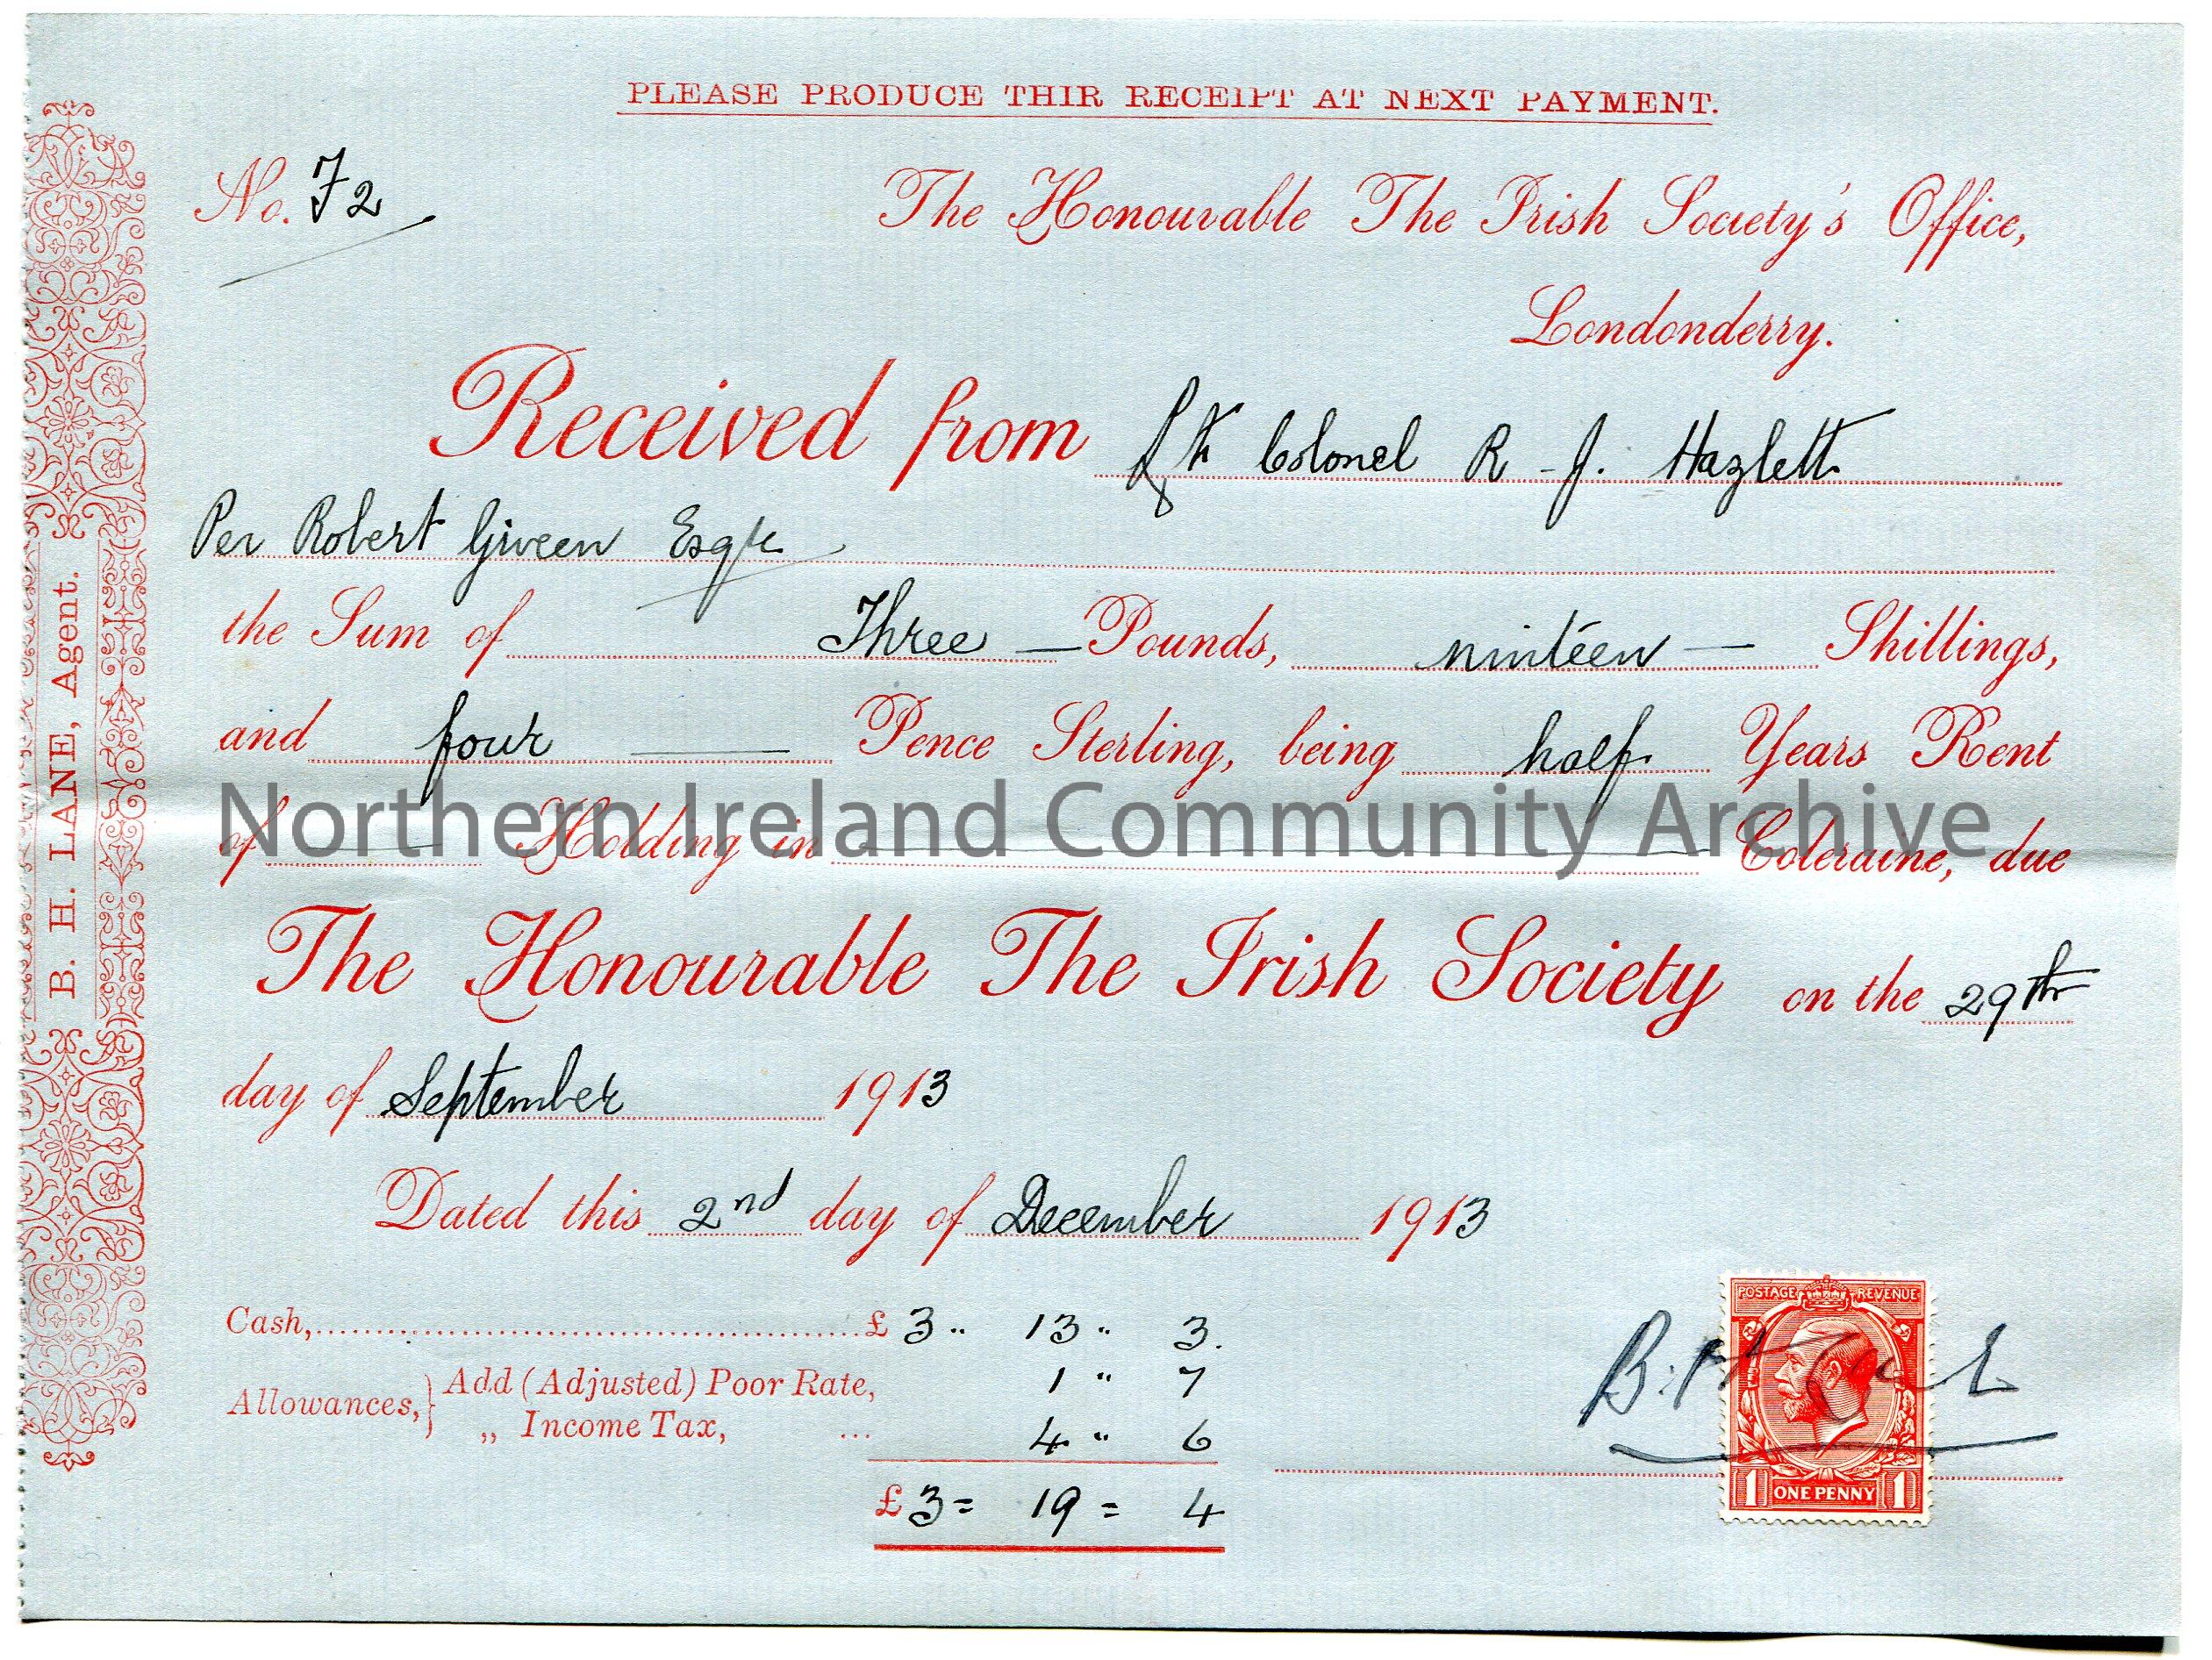 PLEASE PRODUCE THIR RECEIPT AT NEXT PAYMENT.
No. 72
The Honourable The Irish Society's Office,
Londonderry.
Received from Lt Colonel R. J. Hazlett
Per Robert Given Esqre
the Sum of Three — Pounds, ninteen — Shillings,
and four — Pence Sterling, being half Years Rent
of — Holding in — Coleraine, due
The Honourable The Irish Society on the 29th
day of September 1913
Dated this 2nd day of December 1913
Cash, £ 3 " 13 " 3.
Allowances, } Add (Adjusted) Poor Rate, 1 " 7
„ Income Tax, ... 4 " 6
£ 3 = 19 = 4
B. H. Lane
POSTAGE REVENUE
1 ONE PENNY 1
B. H. LANE, Agent.
Northern Ireland Community Archive